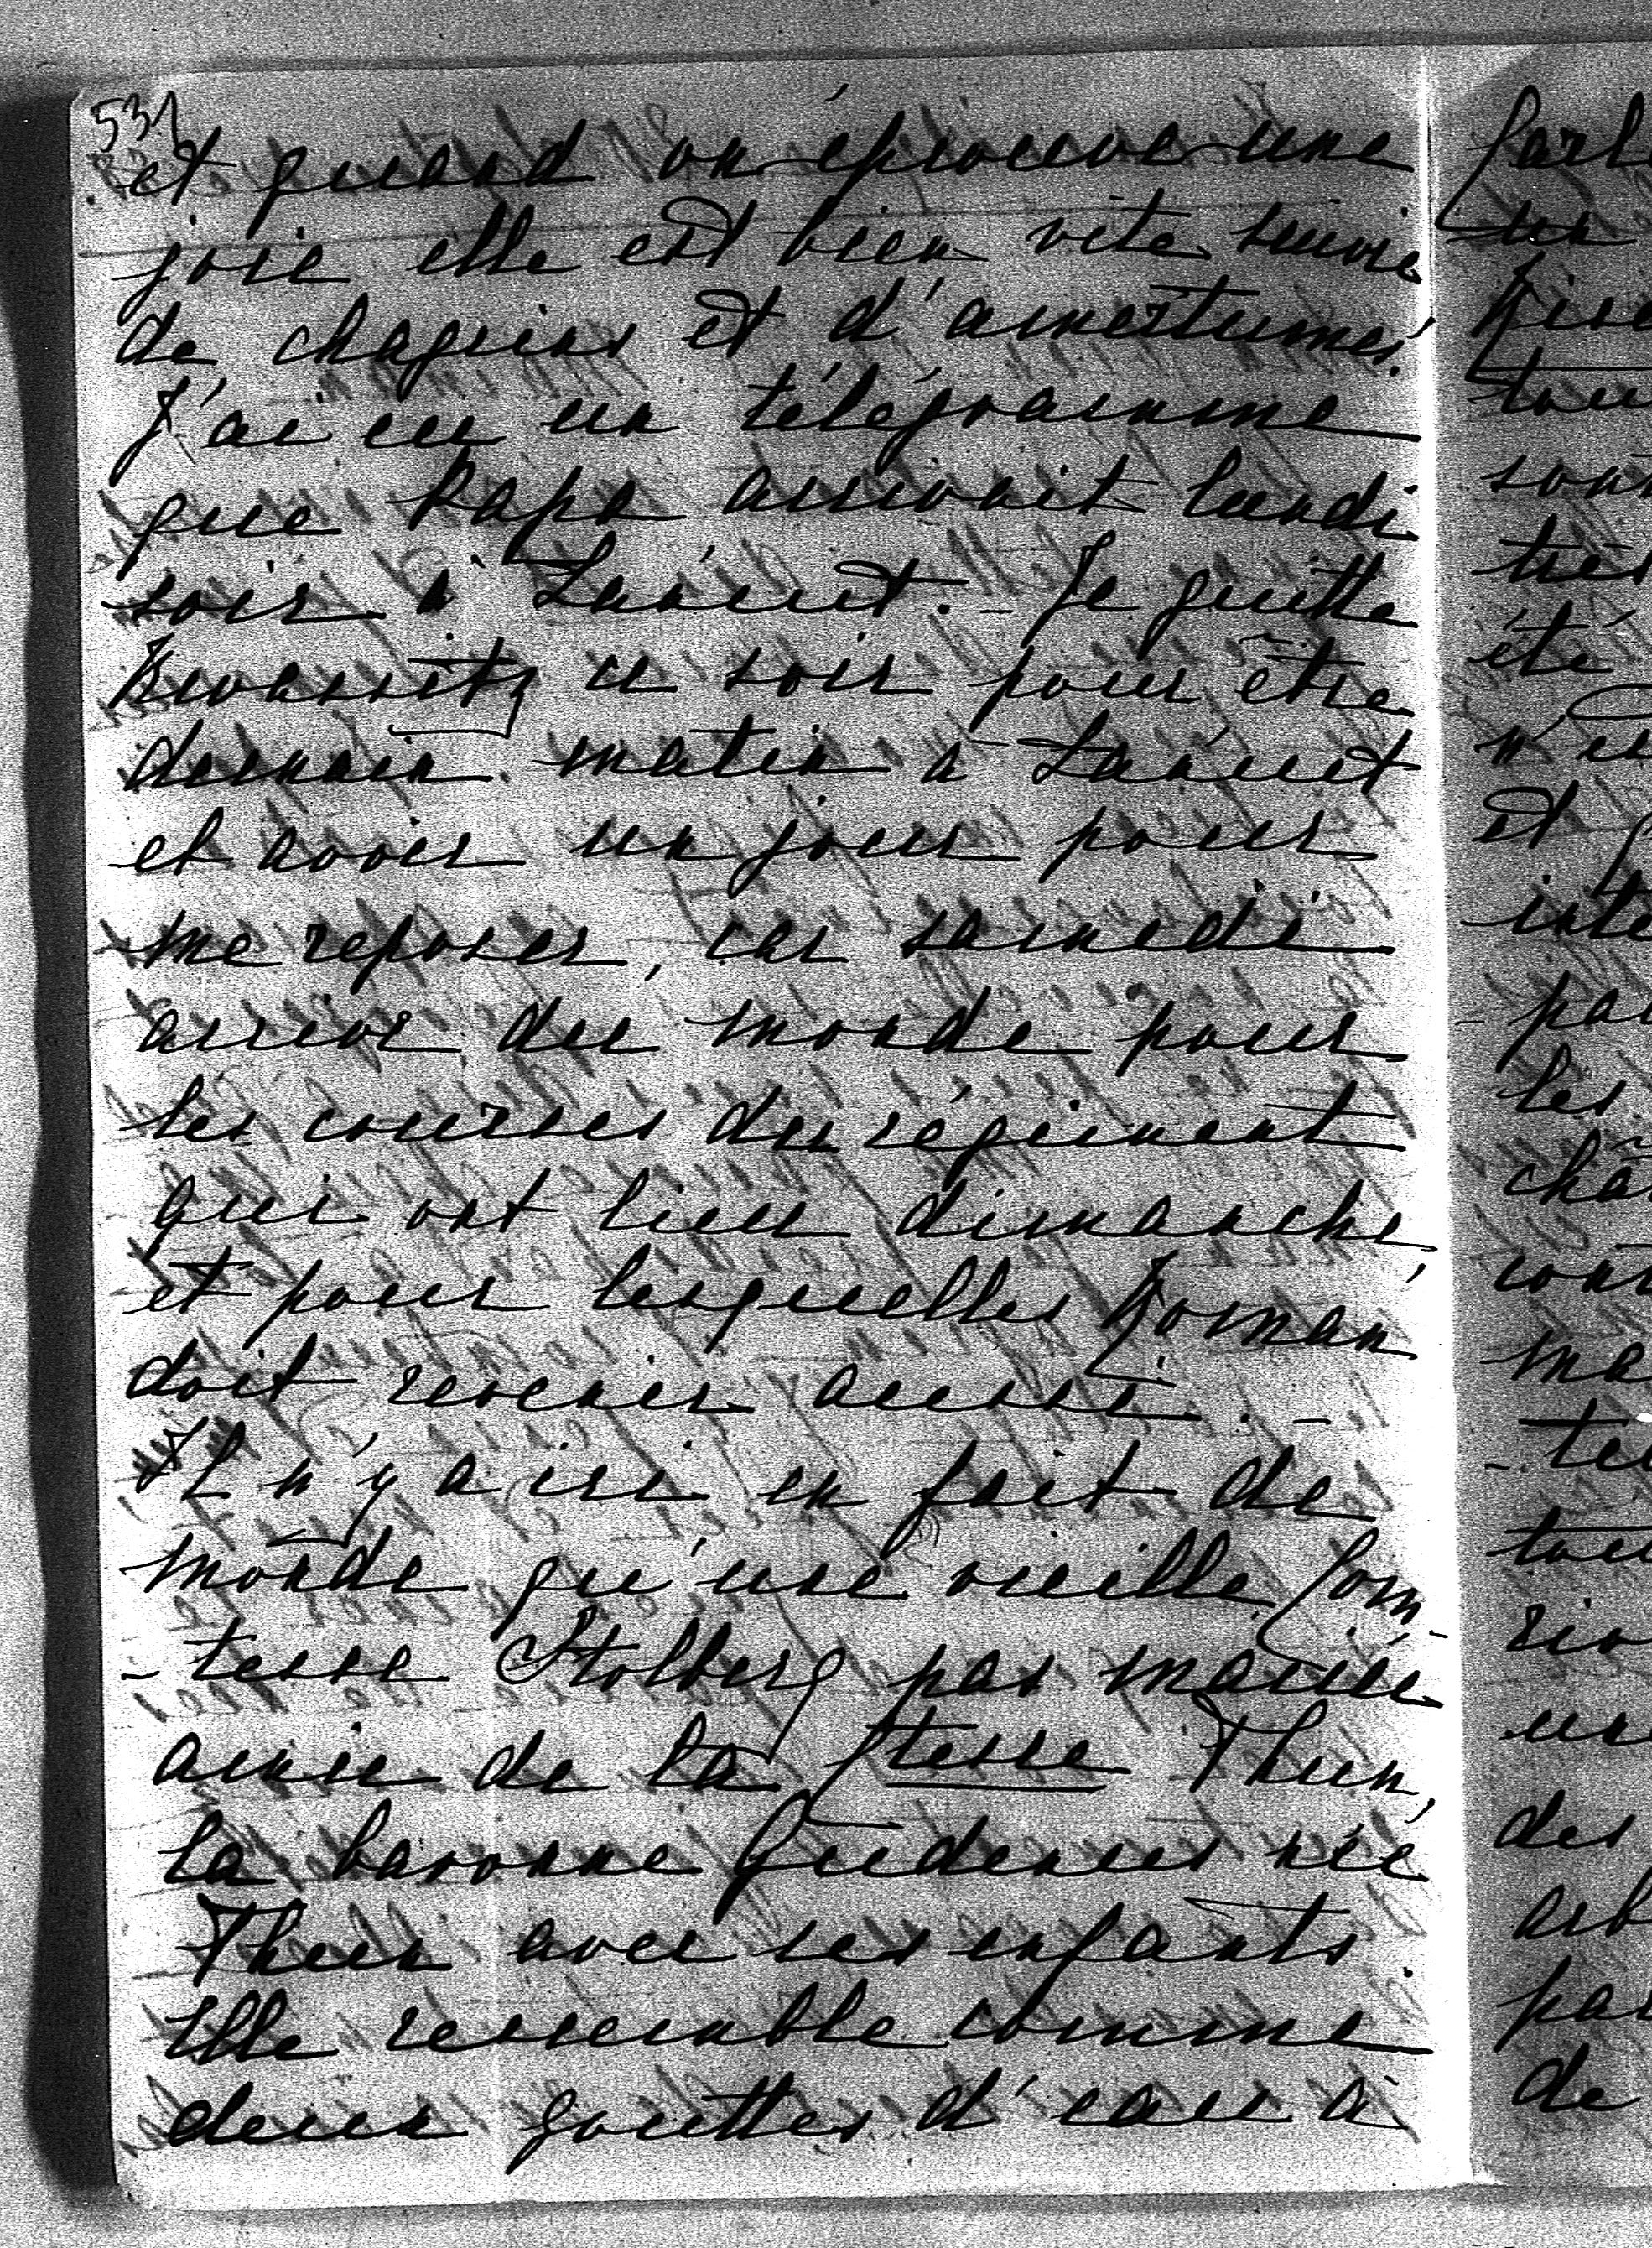 531
et quand on éprouve une
joie elle est bien vite suivie
de chagrins et d'amertumes.
J'ai eu un télégramme
que Papa arrivait lundi
soir à Lancut. - Je quitte
Kwassitz ce soir pour être
demain matin à Lancut
et avoir un jour pour
me reposer, car samedi
arrive du monde pour
les courses du régiment
qui ont lieu dimanche
et pour lesquelles Roman
doit revenir aussi. -
Il n'y a ici en fait de
monde qu'une vieille Com-
-tesse Stolberg pas mariée
amie de la Ctesse Thun,
la baronne Gudenus née
Thun avec ses enfants.
Elle ressemble comme
deux gouttes d'eau à